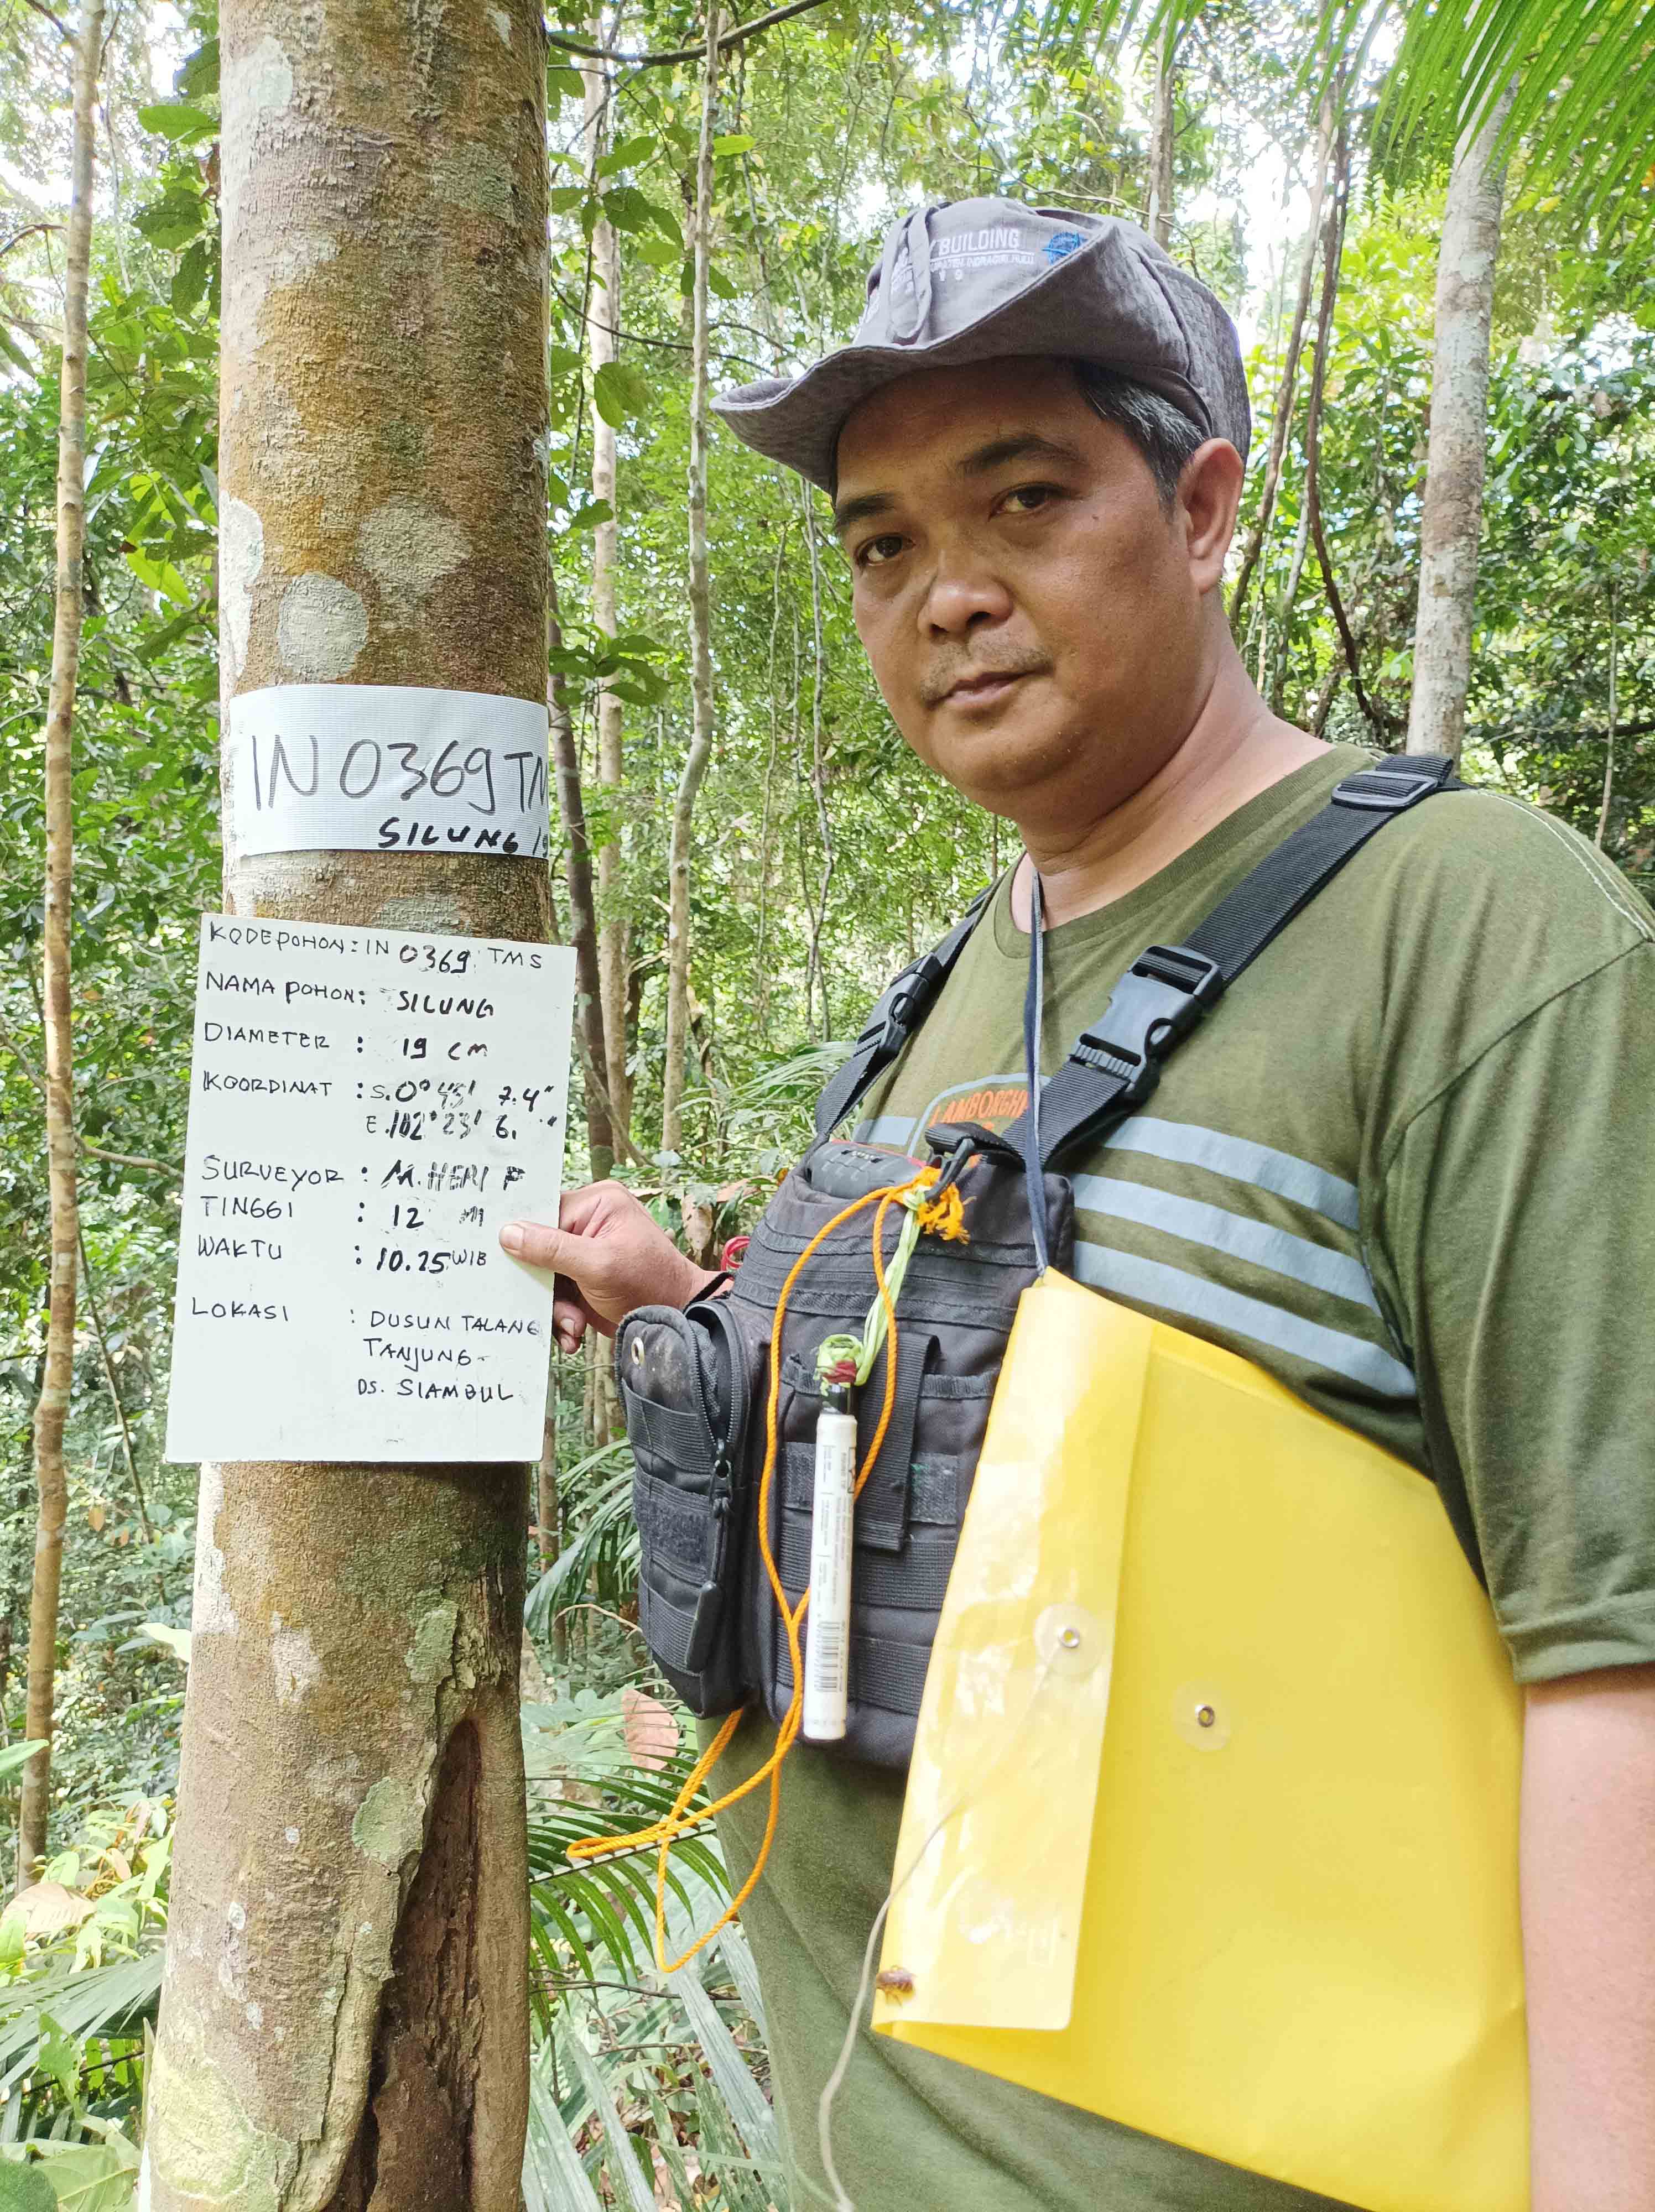 BUILDING
INDRAGIRI HULU
IN 0369 TM
SILUNG 19
KODE POHON : IN 0369 TMS
NAMA POHON : SILUNG
DIAMETER : 19 CM
KOORDINAT : S. 0° 45' 7.4"
E. 102° 23' 6. "
SURVEYOR : M. HERI P
TINGGI : 12 M
WAKTU : 10.25 WIB
LOKASI : DUSUN TALANG
TANJUNG -
DS. SIAMBUL
LAMBORGHI